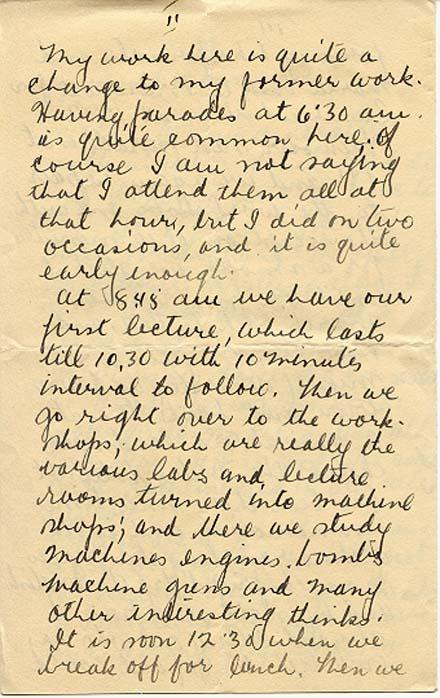 "
My work here is quite a
change to my former work.
Having parades at 6.30 am.
is quite common here. Of
course I am not saying
that I attend them all at
that hour, but I did on two
occasions, and it is quite
early enough.
At 8.45 am we have our
first lecture, which lasts
till 10.30 with 10 minutes
interval to follow. Then we
go right over to the work-
shops; which are really the
various labs and lecture
rooms turned into machine
shops; and there we study
machines engines. bombs
machine guns and many
other interesting thinks.
It is soon 12.30 when we
break off for lunch. Then we